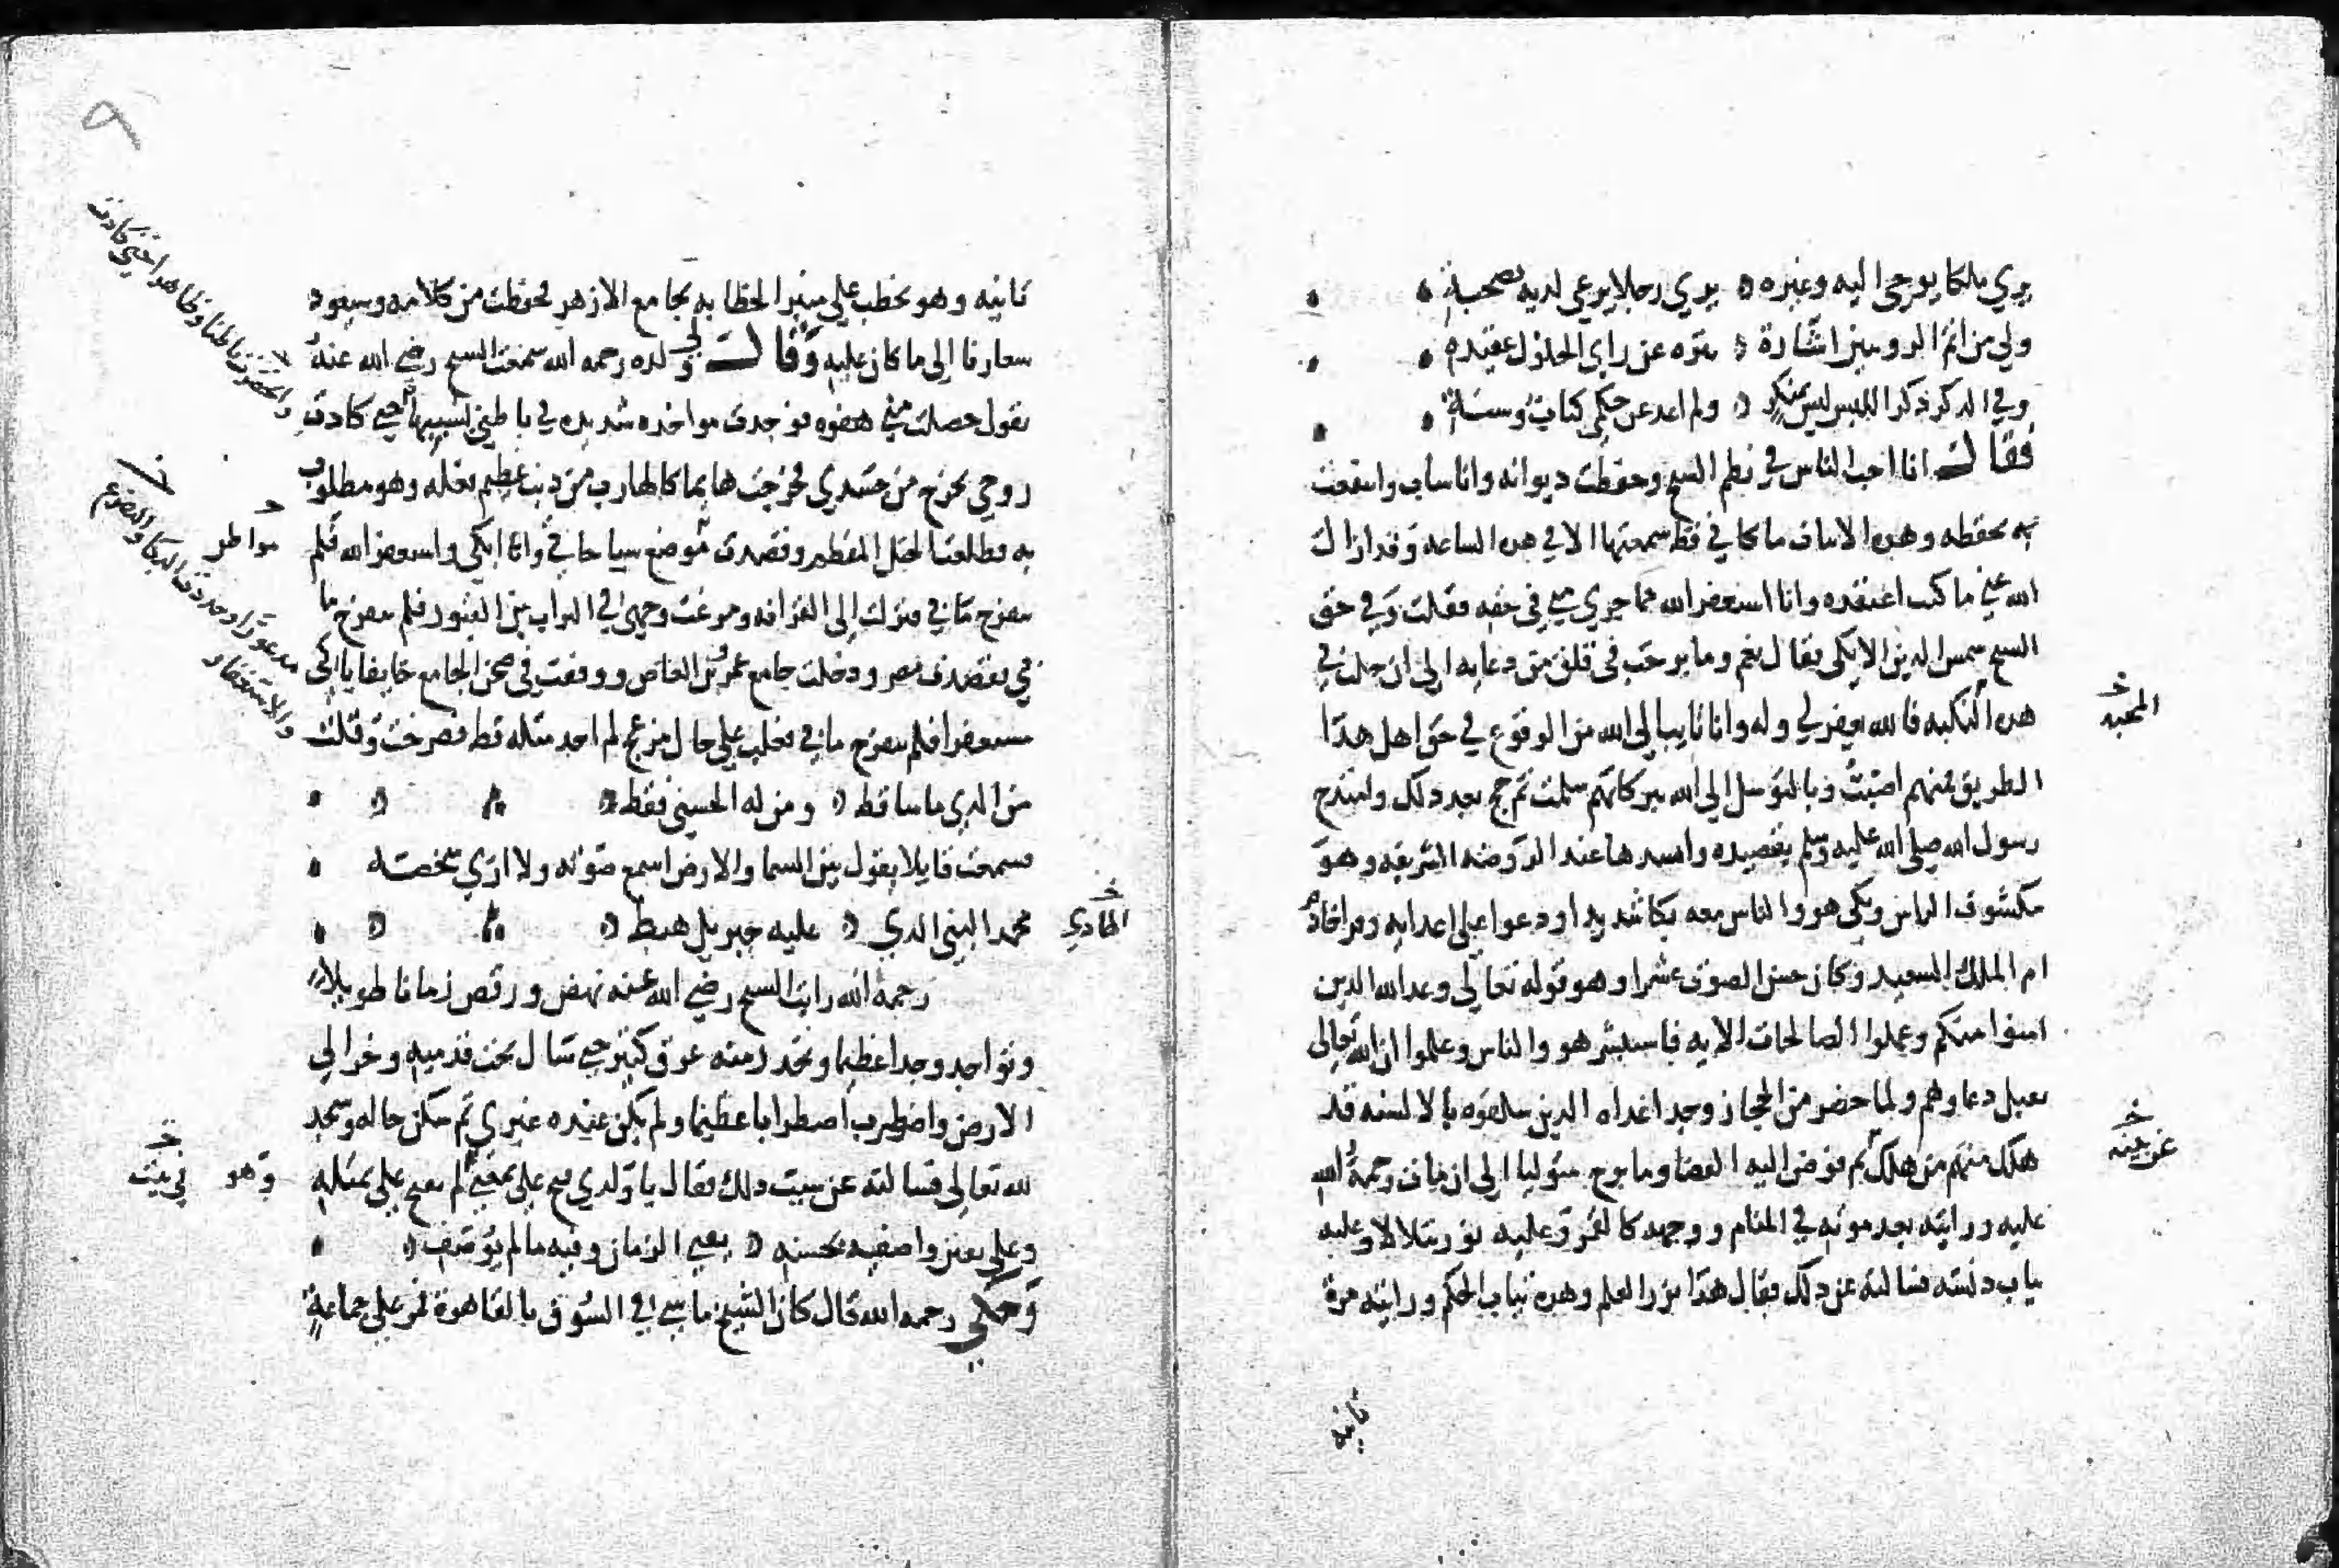 يري ملكا يوحي اليه وغيره يري رجلا يرعي لديه بصحبة
ولي من اتم الرويتين اشارة تنزه عن راي الحلول عقيدتي
وفي الذكر ذكر اللبس ليس بمنكر ولم اعد عن حكمي كتاب وسنة
فقال انا احب الناس في نظم الشيخ وحفظت ديوانه وانا شاب وانتفعت
به بحفظه وهذه الابيات ما كاني قط سمعتها الا في هذه الساعة وقد ازال
الله عني ما كنت اعتقده وانا استغفر الله مما جري مني في حقه فقلت وفي حق
الشيخ شمس الدين الايكي فقال نعم وما برحت في قلق من دعايه الي ان حلت بي
هذه النكبه فالله يغفر لي وله وانا تايب الي الله من الوقوع في حق اهل هذا
الطريق فمنهم اصبت وبالتوسل الي الله ببركاتهم سلمت ثم حج بعد ذلك وامتدح
رسول الله صلي الله عليه وسلم بقصيده وانشدها عند الروضه الشريفه وهو
مكشوف الراس وبكي هو والناس معه بكا شديدا ودعوا علي اعدايه وقرا خادم
ام الملك السعيد وكان حسن الصوت عشرا وهو قوله تعالي وعد الله الذين
امنوا منكم وعملوا الصالحات الايه فاستبشر هو والناس وعلموا ان الله تعالي
تقبل دعاوهم ولما حضر من الحجاز وجد اعداه الذين سلقوه بالالسنه قد
هلك منهم من هلك ثم فوض اليه القضا وما برح متوليا الي ان مات رحمة الله
عليه ورايته بعد موته في المنام ووجهه كالقمر وعليه نور يتلالا وعليه
ثياب دنسه فسالته عن ذلك فقال هذا نور العلم وهذه ثياب الحكم ورايته مرة
المحبه
عن هنه
ثانيه
ثانيه وهو يخطب علي منبر الخطابه بجامع الازهر فحفظت من كلامه وسيعود
سعارفا الي ما كان عليه وقال لي ولده رحمه الله سمعت الشيخ رضي الله عنه
يقول حصلت مني هفوه فوجدت مواخذه شديده في باطني بسببها حتي كادت
روحي تخرج من جسدي فخرجت هايما كالهارب من ذنب عظيم فعله وهو مطلوب
به فطلعت الجبل المقطم وقصدت موضع سياحاتي وانا ابكي واستغفر الله فلم
ينفرج ما بي فنزلت الي القرافه ومرغت وجهي في التراب بين القبور فلم ينفرج ما
بي فقصدت مصر ودخلت جامع عمرو بن العاص ووقفت في صحن الجامع خايفا باكي
مستغفرا فلم ينفرج ما بي فغلب علي حال مزعج لم اجد مثله قط فصرخت وقلت
من الذي ما سا قط ومن له الحسني فقط
فسمعت قايلا يقول بين السما والارض اسمع صوته ولا اري شخصه
محمد النبي الذي عليه جبريل هبط
رحمة الله رايت الشيخ رضي الله عنه نهض ورقص زمانا طويلا
وتواجد وجدا عظيما وتحدر منه عرق كثير حتي سال تحت قدميه وخر الي
الارض واضطرب اضطرابا عظيما ولم يكن عنده غيري ثم سكن حاله وسجد
لله تعالي فسالته عن سبب ذلك فقال يا ولدي فتح علي بمعني لم يفتح علي بمثله
وعلي تفنن واصفيه بحسنه يفني الزمان وفيه ما لم يوصف
وحكي رحمه الله قال كان الشيخ ماشي في السوق بالقاهرة فمر علي جماعة
الهادي
مواطن
وهو في بيت
مذعورا وجددت البكا والتضرع
والاستغفار